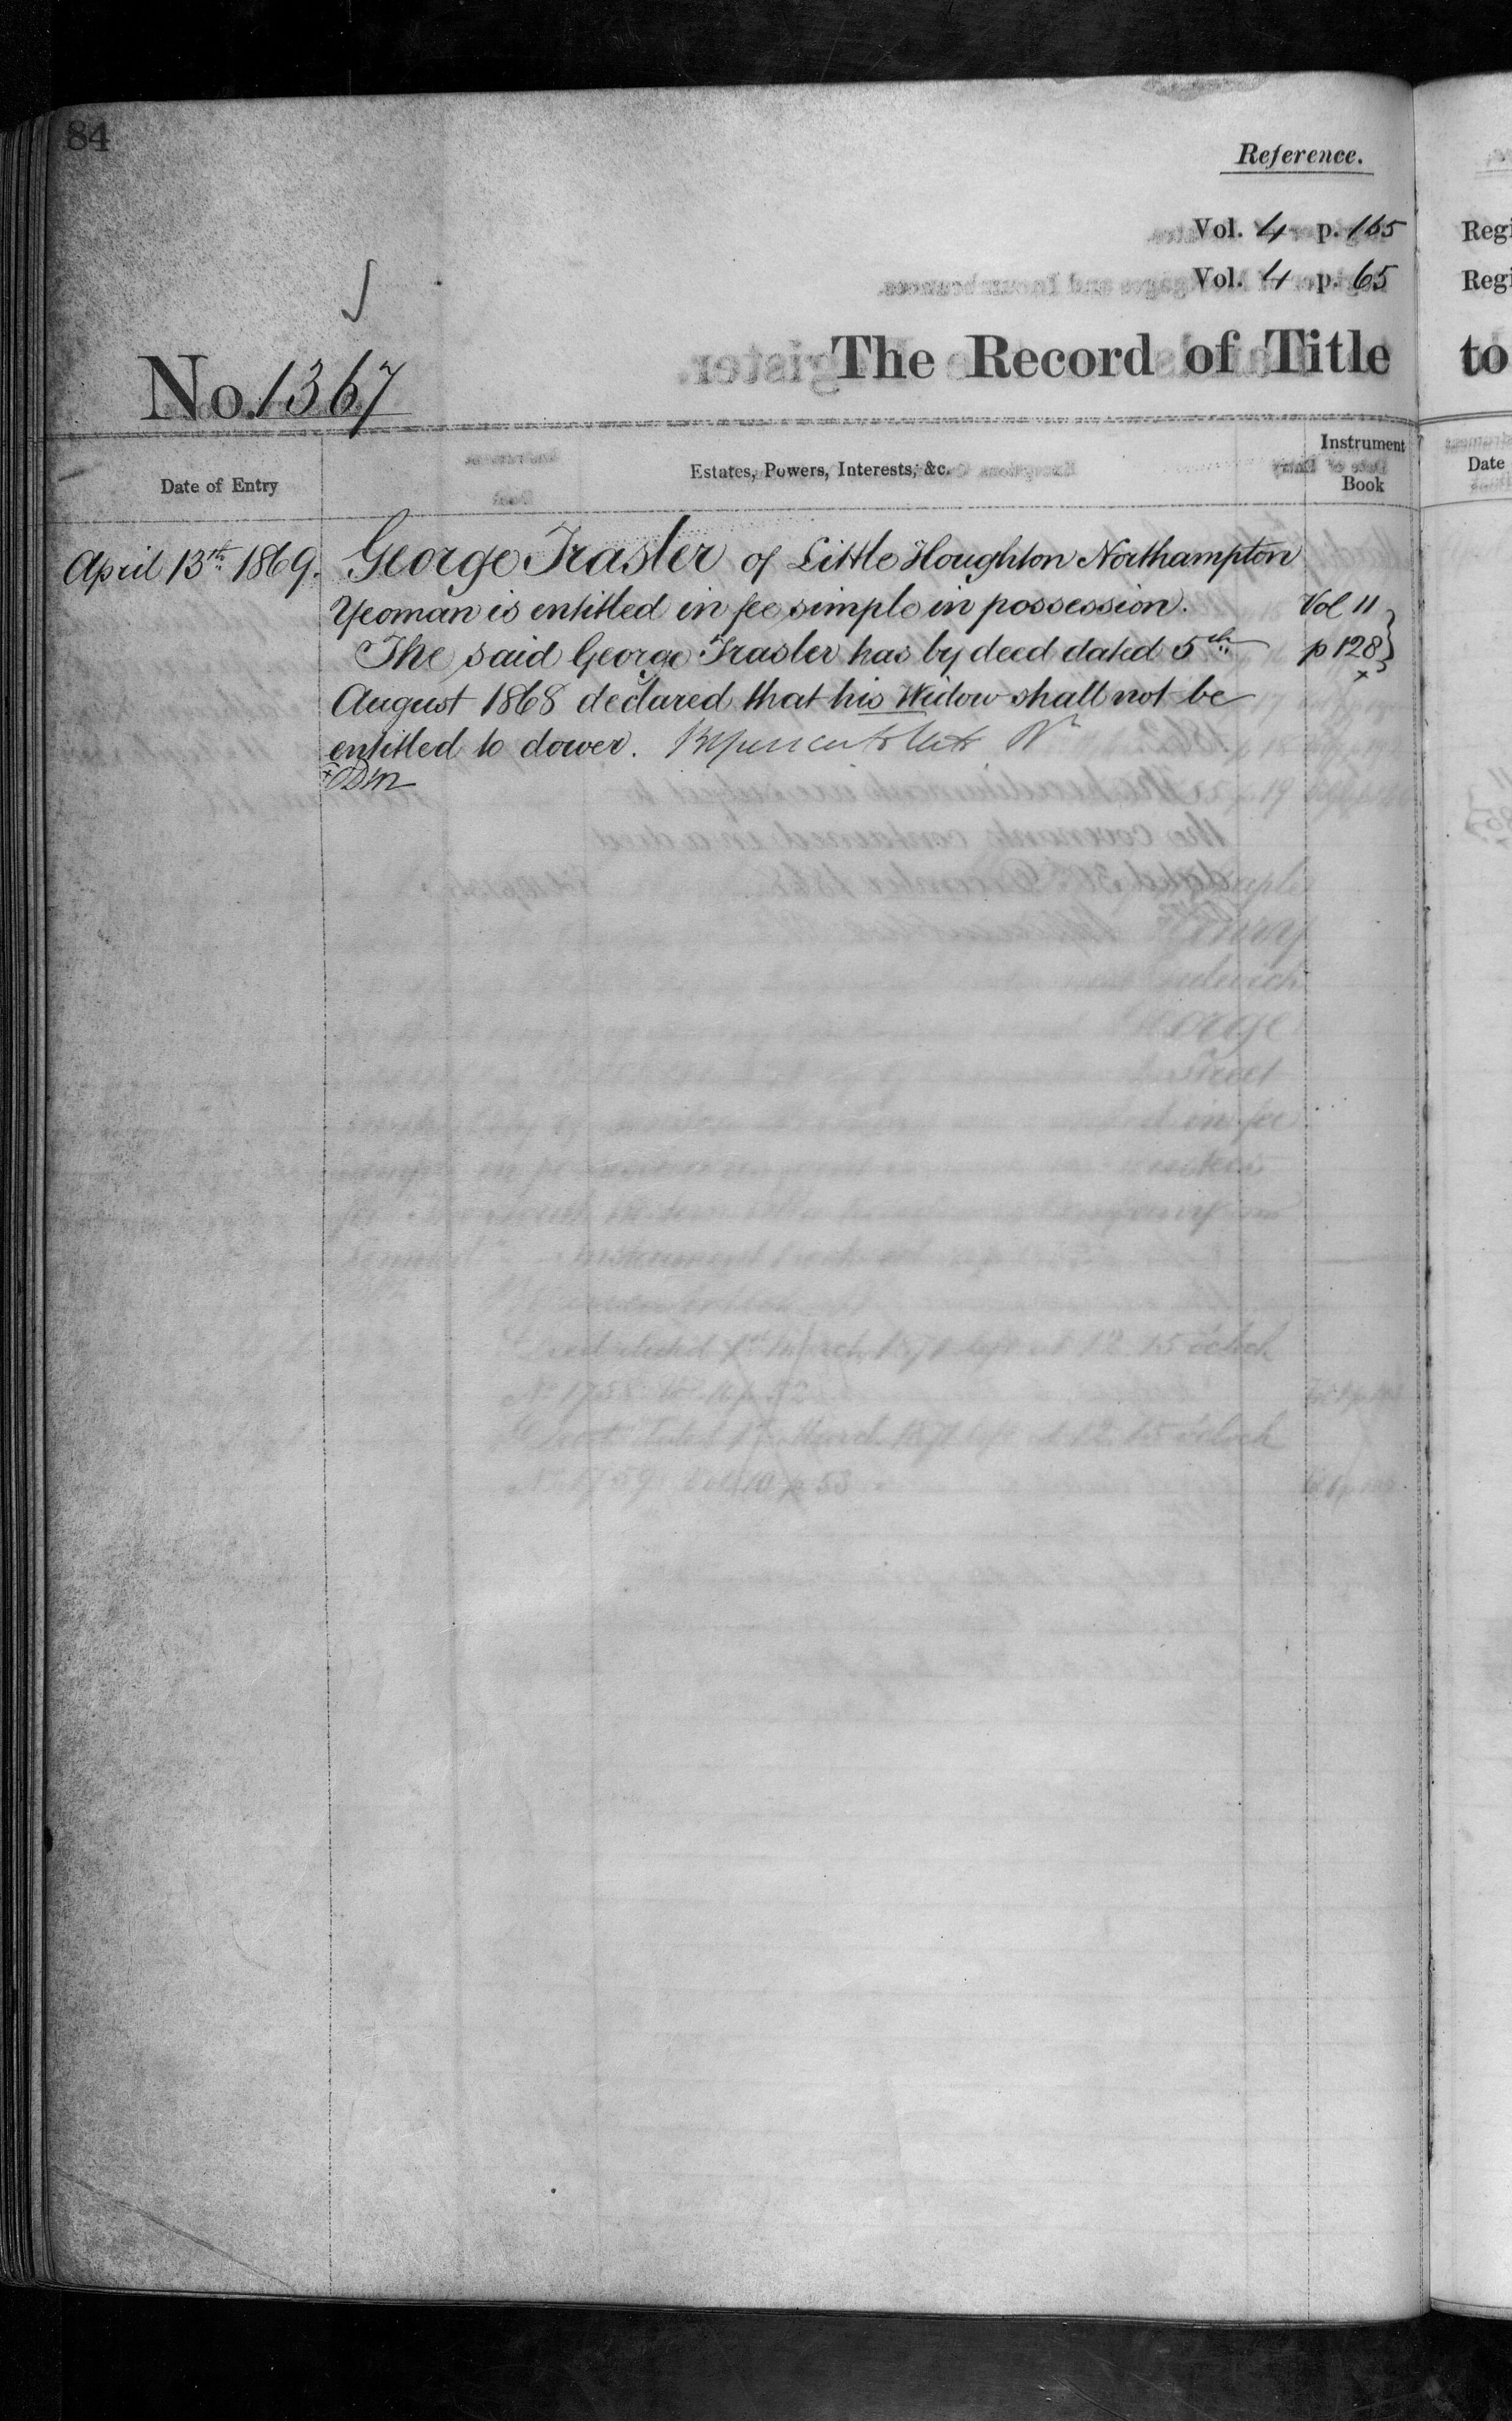 84
Reference.
Vol. 4 p. 165
Vol. 4 p. 65
No. 1367
The Record of Title
Date of Entry
Estates, Powers, Interests, &c.
Instrument
Book
April 13th 1869. George Trasler of Little Houghton Northampton
Yeoman is entitled in fee simple in possession. Vol 11
The said George Trasler has by deed dated 5th p 128
August 1868 declared that his Widow shall not be
entitled to dower.
Regi
Regi
to
Date